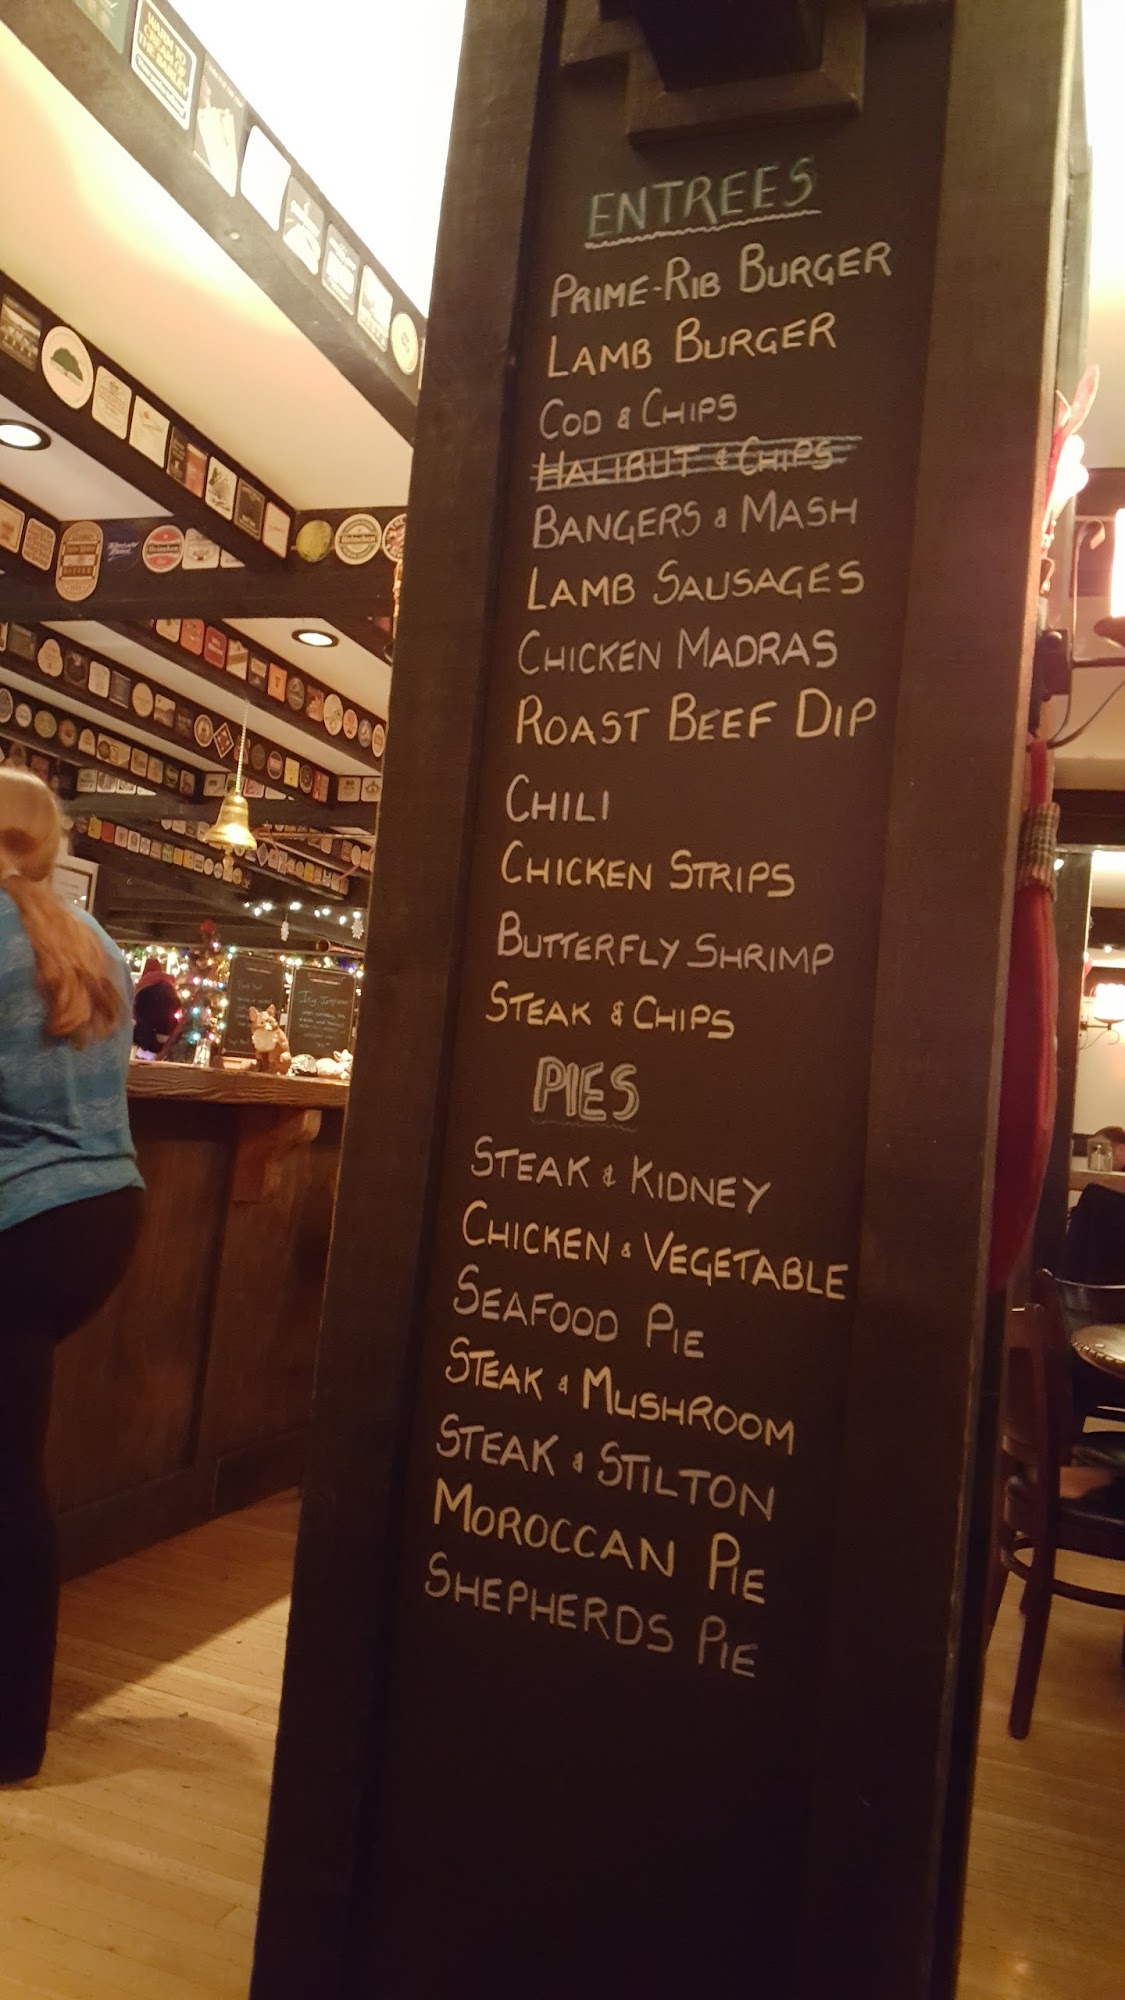 ENTREES
PRIME-RIB BURGER
LAMB BURGER
COD & CHIPS
HALIBUT & CHIPS
BANGERS & MASH
LAMB SAUSAGES
CHICKEN MADRAS
ROAST BEEF DIP
CHILI
CHICKEN STRIPS
BUTTERFLY SHRIMP
STEAK & CHIPS
PIES
STEAK & KIDNEY
CHICKEN & VEGETABLE
SEAFOOD PIE
STEAK & MUSHROOM
STEAK & STILTON
MOROCCAN PIE
SHEPHERDS PIE
Heineken
Heineken